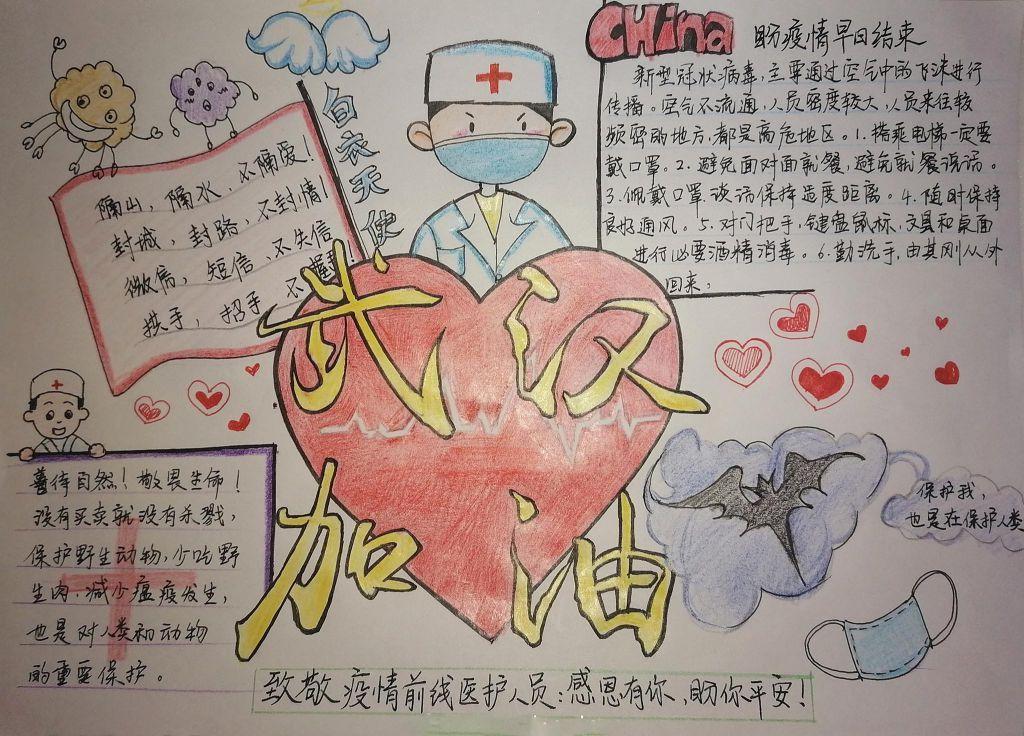 China 盼疫情早日结束
新型冠状病毒，主要通过空气中的飞沫进行
传播。空气不流通，人员密度较大，人员来往较
频密的地方，都是高危地区。1.搭乘电梯一定要
戴口罩。2.避免面对面就餐，避免就餐说话。
3.佩戴口罩谈话保持适度距离。4.随时保持
良好通风。5.对门把手、键盘鼠标、文具和桌面
进行必要酒精消毒。6.勤洗手，由其刚从外
回来，
白衣天使
隔山，隔水，不隔爱！
封城，封路，不封情！
微信，短信，不失信
拱手，招手，不握手！
武汉
加油
善待自然！敬畏生命！
没有买卖就没有杀戮，
保护野生动物，少吃野
生肉.减少瘟疫发生，
也是对人类和动物
的重要保护。
保护我，
也是在保护人类
致敬疫情前线医护人员：感恩有你、盼你平安！